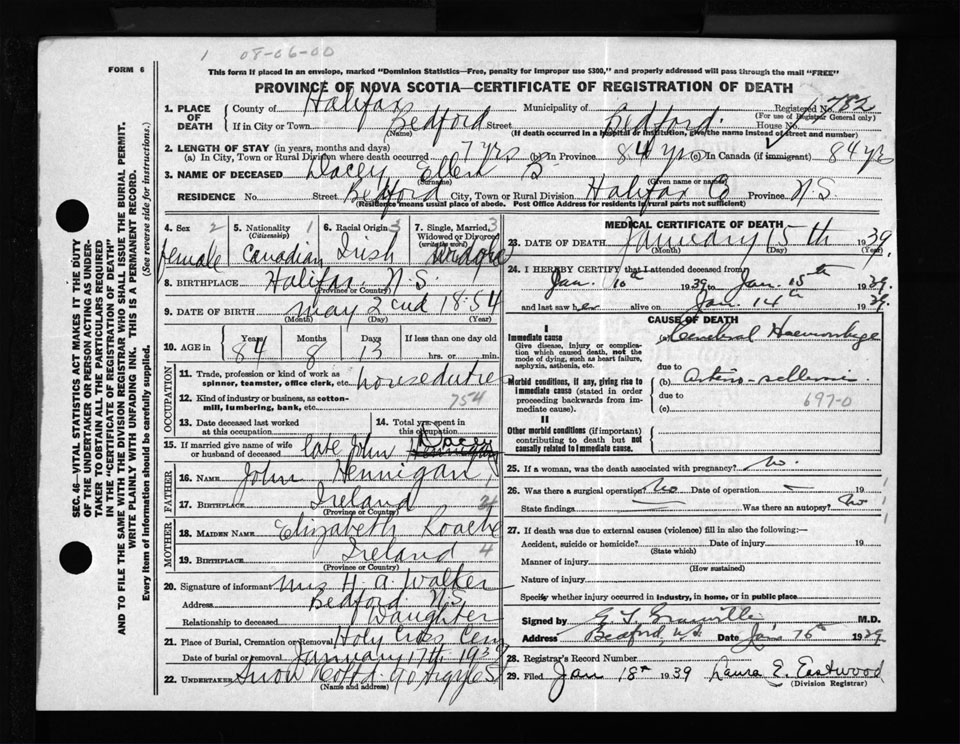 1 08-06-00
FORM 6
This form if placed in an envelope, marked "Dominion Statistics—Free, penalty for improper use $300," and properly addressed will pass through the mail "FREE"
PROVINCE OF NOVA SCOTIA—CERTIFICATE OF REGISTRATION OF DEATH
1. PLACE OF DEATH { County of Halifax Municipality of Registered No. 782
(For use of Registrar General only)
If in City or Town Bedford Street Bedford. House No.
(Name) (If death occurred in a hospital or institution, give the name instead of street and number)
2. LENGTH OF STAY (in years, months and days)
(a) In City, Town or Rural Division where death occurred 7 yrs (b) In Province 84 yrs (c) In Canada (if immigrant) 84 yrs
3. NAME OF DECEASED Dacey Ellen B
(Surname) (Given name or names)
RESIDENCE No. Street Bedford City, Town or Rural Division Halifax Co Province N.S.
(Residence means usual place of abode. Post Office Address for residents in rural parts not sufficient)
4. Sex 2 female
5. Nationality (Citizenship) 1 Canadian
6. Racial Origin 3 Irish
7. Single, Married, Widowed or Divorced (write the word) 3 widow
8. BIRTHPLACE Halifax N.S.
(Province or Country)
9. DATE OF BIRTH May 2cnd 1854
(Month) (Day) (Year)
10. AGE in { Years 84 Months 8 Days 13 If less than one day
hrs. or min.
OCCUPATION
11. Trade, profession or kind of work as spinner, teamster, office clerk, etc. house duties
12. Kind of industry or business, as cotton-mill, lumbering, bank, etc. 754
13. Date deceased last worked at this occupation
14. Total yrs. spent in this occupation
15. If married give name of wife or husband of deceased late John Dacey
FATHER
16. NAME John Hennigan
17. BIRTHPLACE Ireland
(Province or Country)
MOTHER
18. MAIDEN NAME Elizabeth Roache
19. BIRTHPLACE Ireland 4
(Province or Country)
20. Signature of informant Mrs H. A. Walker
Address Bedford N.S.
Relationship to deceased Daughter
21. Place of Burial, Cremation or Removal Holy Cross Cem
Date of burial or removal January 17th 1939
22. UNDERTAKER Snow Co Ltd 90 Argyle St
(Name and address)
MEDICAL CERTIFICATE OF DEATH
23. DATE OF DEATH January 15th 1939.
(Month) (Day) (Year)
24. I HEREBY CERTIFY that I attended deceased from
Jan. 10th 1939 to Jan. 15th 1939.
and last saw her alive on Jan. 14th 1939.
CAUSE OF DEATH
I
Immediate cause (a) Cerebral Haemorrhage
Give disease, injury or complication which caused death, not the mode of dying, such as heart failure, asphyxia, asthenia, etc.
due to
Morbid conditions, if any, giving rise to immediate cause (stated in order proceeding backwards from immediate cause). (b)
due to
(c) 697-0
II
Other morbid conditions (if important) contributing to death but not causally related to immediate cause.
25. If a woman, was the death associated with pregnancy? No.
26. Was there a surgical operation? No Date of operation 19
State findings Was there an autopsy? No
27. If death was due to external causes (violence) fill in also the following:—
Accident, suicide or homicide? Date of injury 19
(State which)
Manner of injury
(How sustained)
Nature of injury
Specify whether injury occurred in industry, in home, or in public place
Signed by M.D.
Address Bedford, N.S. Date Jan 1939
28. Registrar's Record Number
29. Filed Jan 18th 1939 Laura E. Eastwood
(Division Registrar)
SEC. 46—VITAL STATISTICS ACT MAKES IT THE DUTY
OF THE UNDERTAKER OR PERSON ACTING AS UNDER-
TAKER TO OBTAIN ALL THE PARTICULARS REQUIRED
IN THE "CERTIFICATE OF REGISTRATION OF DEATH"
AND TO FILE THE SAME WITH THE DIVISION REGISTRAR WHO SHALL ISSUE THE BURIAL PERMIT.
WRITE PLAINLY WITH UNFADING INK. THIS IS A PERMANENT RECORD.
Every item of information should be carefully supplied. (See reverse side for instructions.)